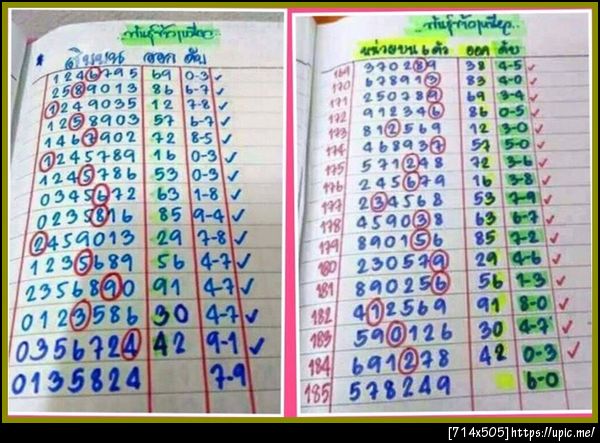 พันธุ์ข้าวเหนียว
สิบบน ออก ดับ
1246795 69 0-3 ✓
2589013 86 6-7 ✓
1249035 12 7-8 ✓
1258903 57 6-7 ✓
1467902 72 8-5 ✓
1245789 16 0-3 ✓
1245786 53 0-3 ✓
0345672 63 1-8 ✓
0235816 85 9-4 ✓
2459013 29 7-8 ✓
1235689 56 4-7 ✓
2356890 91 4-7 ✓
0123586 30 4-7 ✓
0356724 42 9-1 ✓
0135824 7-9
พันธุ์ข้าวเหนียว
หน่วยบน 6 ตัว ออก ดับ
169 370289 38 4-5 ✓
170 678913 83 4-0 ✓
171 250789 69 3-4 ✓
172 912346 86 0-5 ✓
173 812569 12 3-0 ✓
174 468937 57 5-0 ✓
175 571248 72 3-6 ✓
176 245679 16 3-8 ✓
177 234568 53 7-9 ✓
178 459038 63 6-7 ✓
179 890156 85 7-2 ✓
180 230579 29 4-6 ✓
181 890256 56 1-3 ✓
182 412569 91 8-0 ✓
183 590126 30 4-7 ✓
184 691278 42 0-3 ✓
185 578249 6-0
[714x505]https://upic.me/